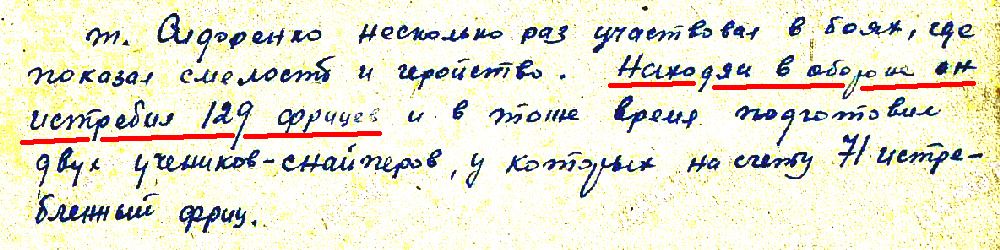 т. Сидоренко несколько раз участвовал в боях, где
показал смелость и геройство. Находяи в обороне он
истребил 129 фрицев и в тоже время подготовил
двух учеников-снайперов, у которых на счету 71 истре-
бленный фриц.